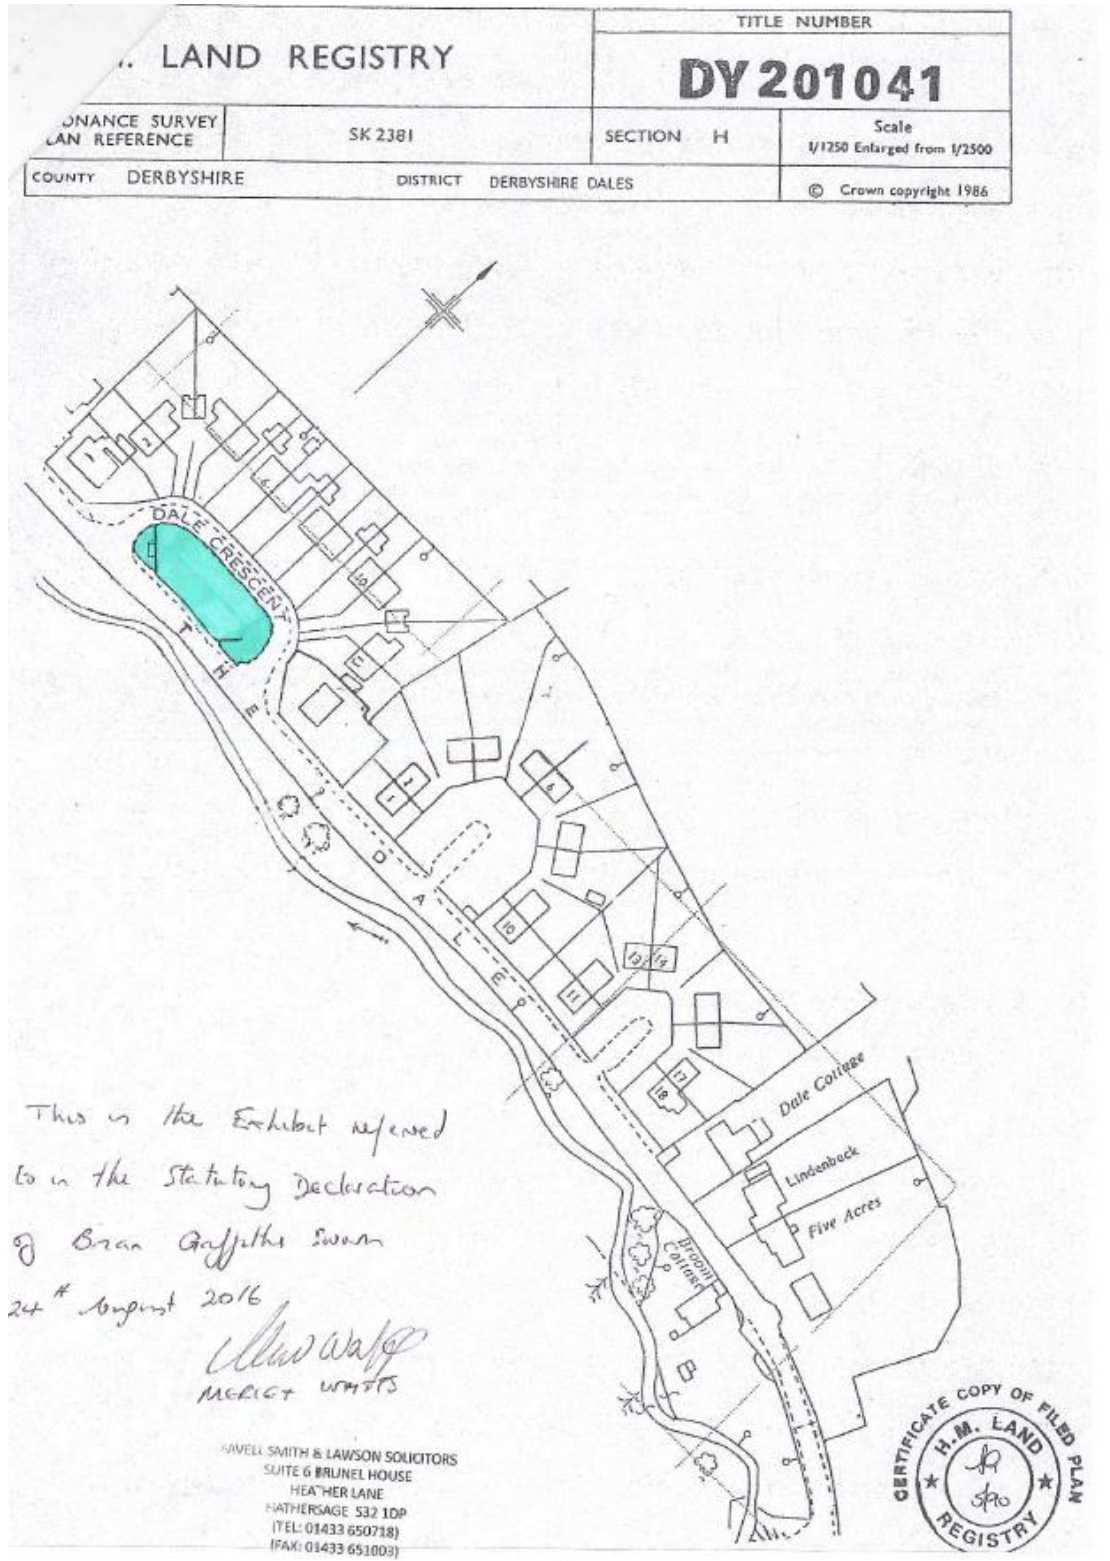 LAND REGISTRY
TITLE NUMBER
DY 201041
ONANCE SURVEY
LAN REFERENCE
SK 2381
SECTION H
Scale
1/1250 Enlarged from 1/2500
COUNTY DERBYSHIRE
DISTRICT DERBYSHIRE DALES
© Crown copyright 1986
1
2
6
DALE CRESCENT
10
11
THE DALE
2
1
6
10
13
14
11
17
18
Dale Cottage
Lindenbeck
Five Acres
Broom
Cottage
This is the Exhibit referred
to in the Statutory Declaration
of Brian Griffiths Sworn
24th August 2016
WATTS
AVELL SMITH & LAWSON SOLICITORS
SUITE 6 BRUNEL HOUSE
HEATHER LANE
HATHERSAGE S32 1DP
(TEL: 01433 650718)
(FAX: 01433 651003)
CERTIFICATE COPY OF FILED PLAN
H.M. LAND
REGISTRY
5/90